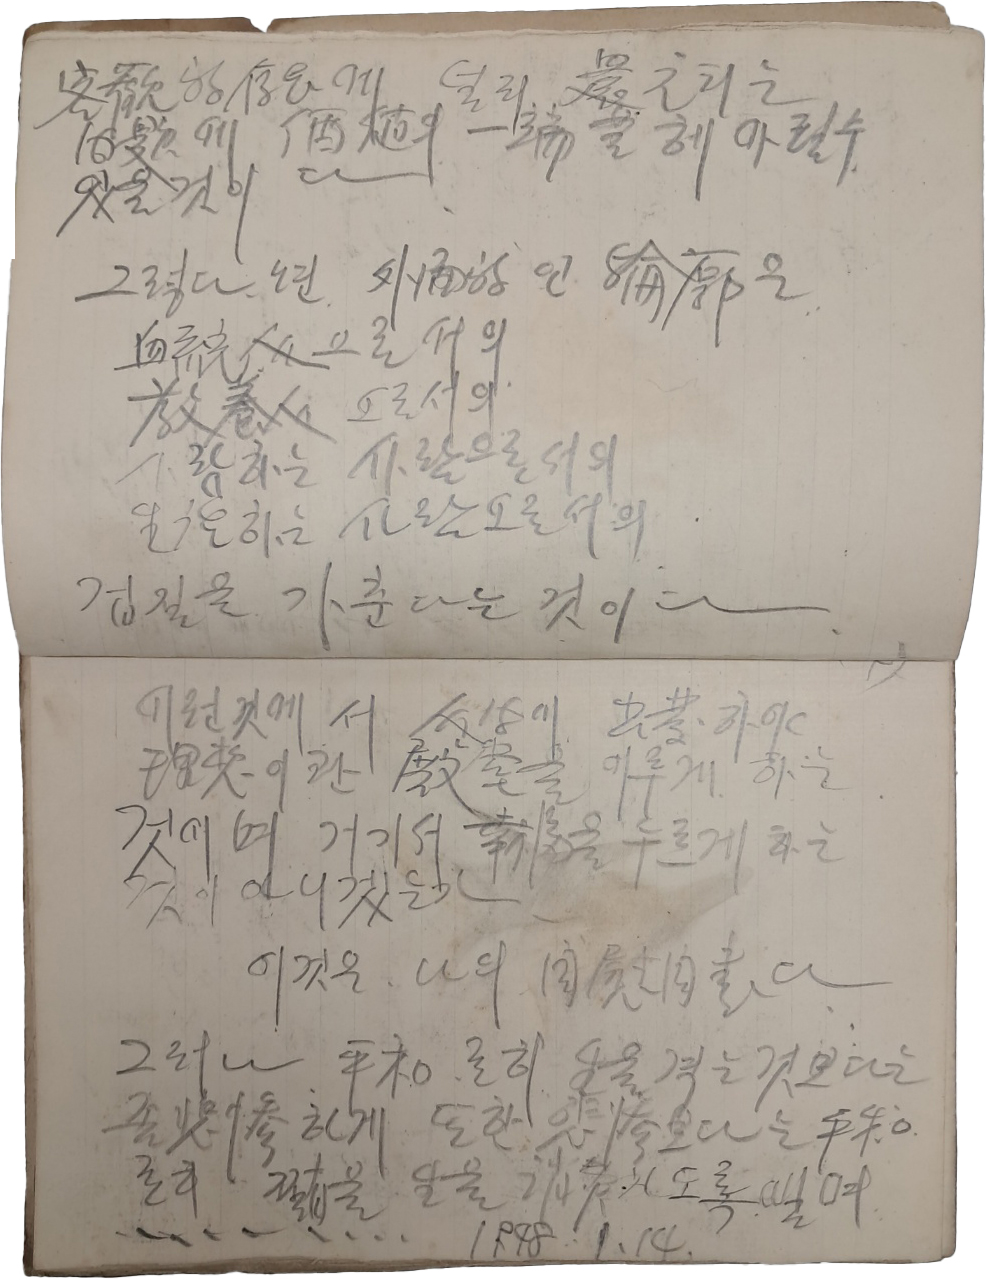 客觀的存在에 널리
에 價値의 一端 해 아릴수
있을것이다.
그렇다면 外面的인 輪廓은
血統人으로서의
敎養人으로서의
사람하는 사람으로서의
생활하는 사람으로서의
겁질을 가춘다는 것이다.
이런것에서 人生이 出發하야
理想이란 殿堂을 이루게 하는
것이며 거기서 幸福을 누르게 하는
것이 아니겠는가
이것은 나의 自慰自畵다.
그러나 平和로히 生을 격는것보다는
좀 悲慘하게 또한 悲慘보다는 平和
로히 生을 도록 빌며
1948. 1. 14.